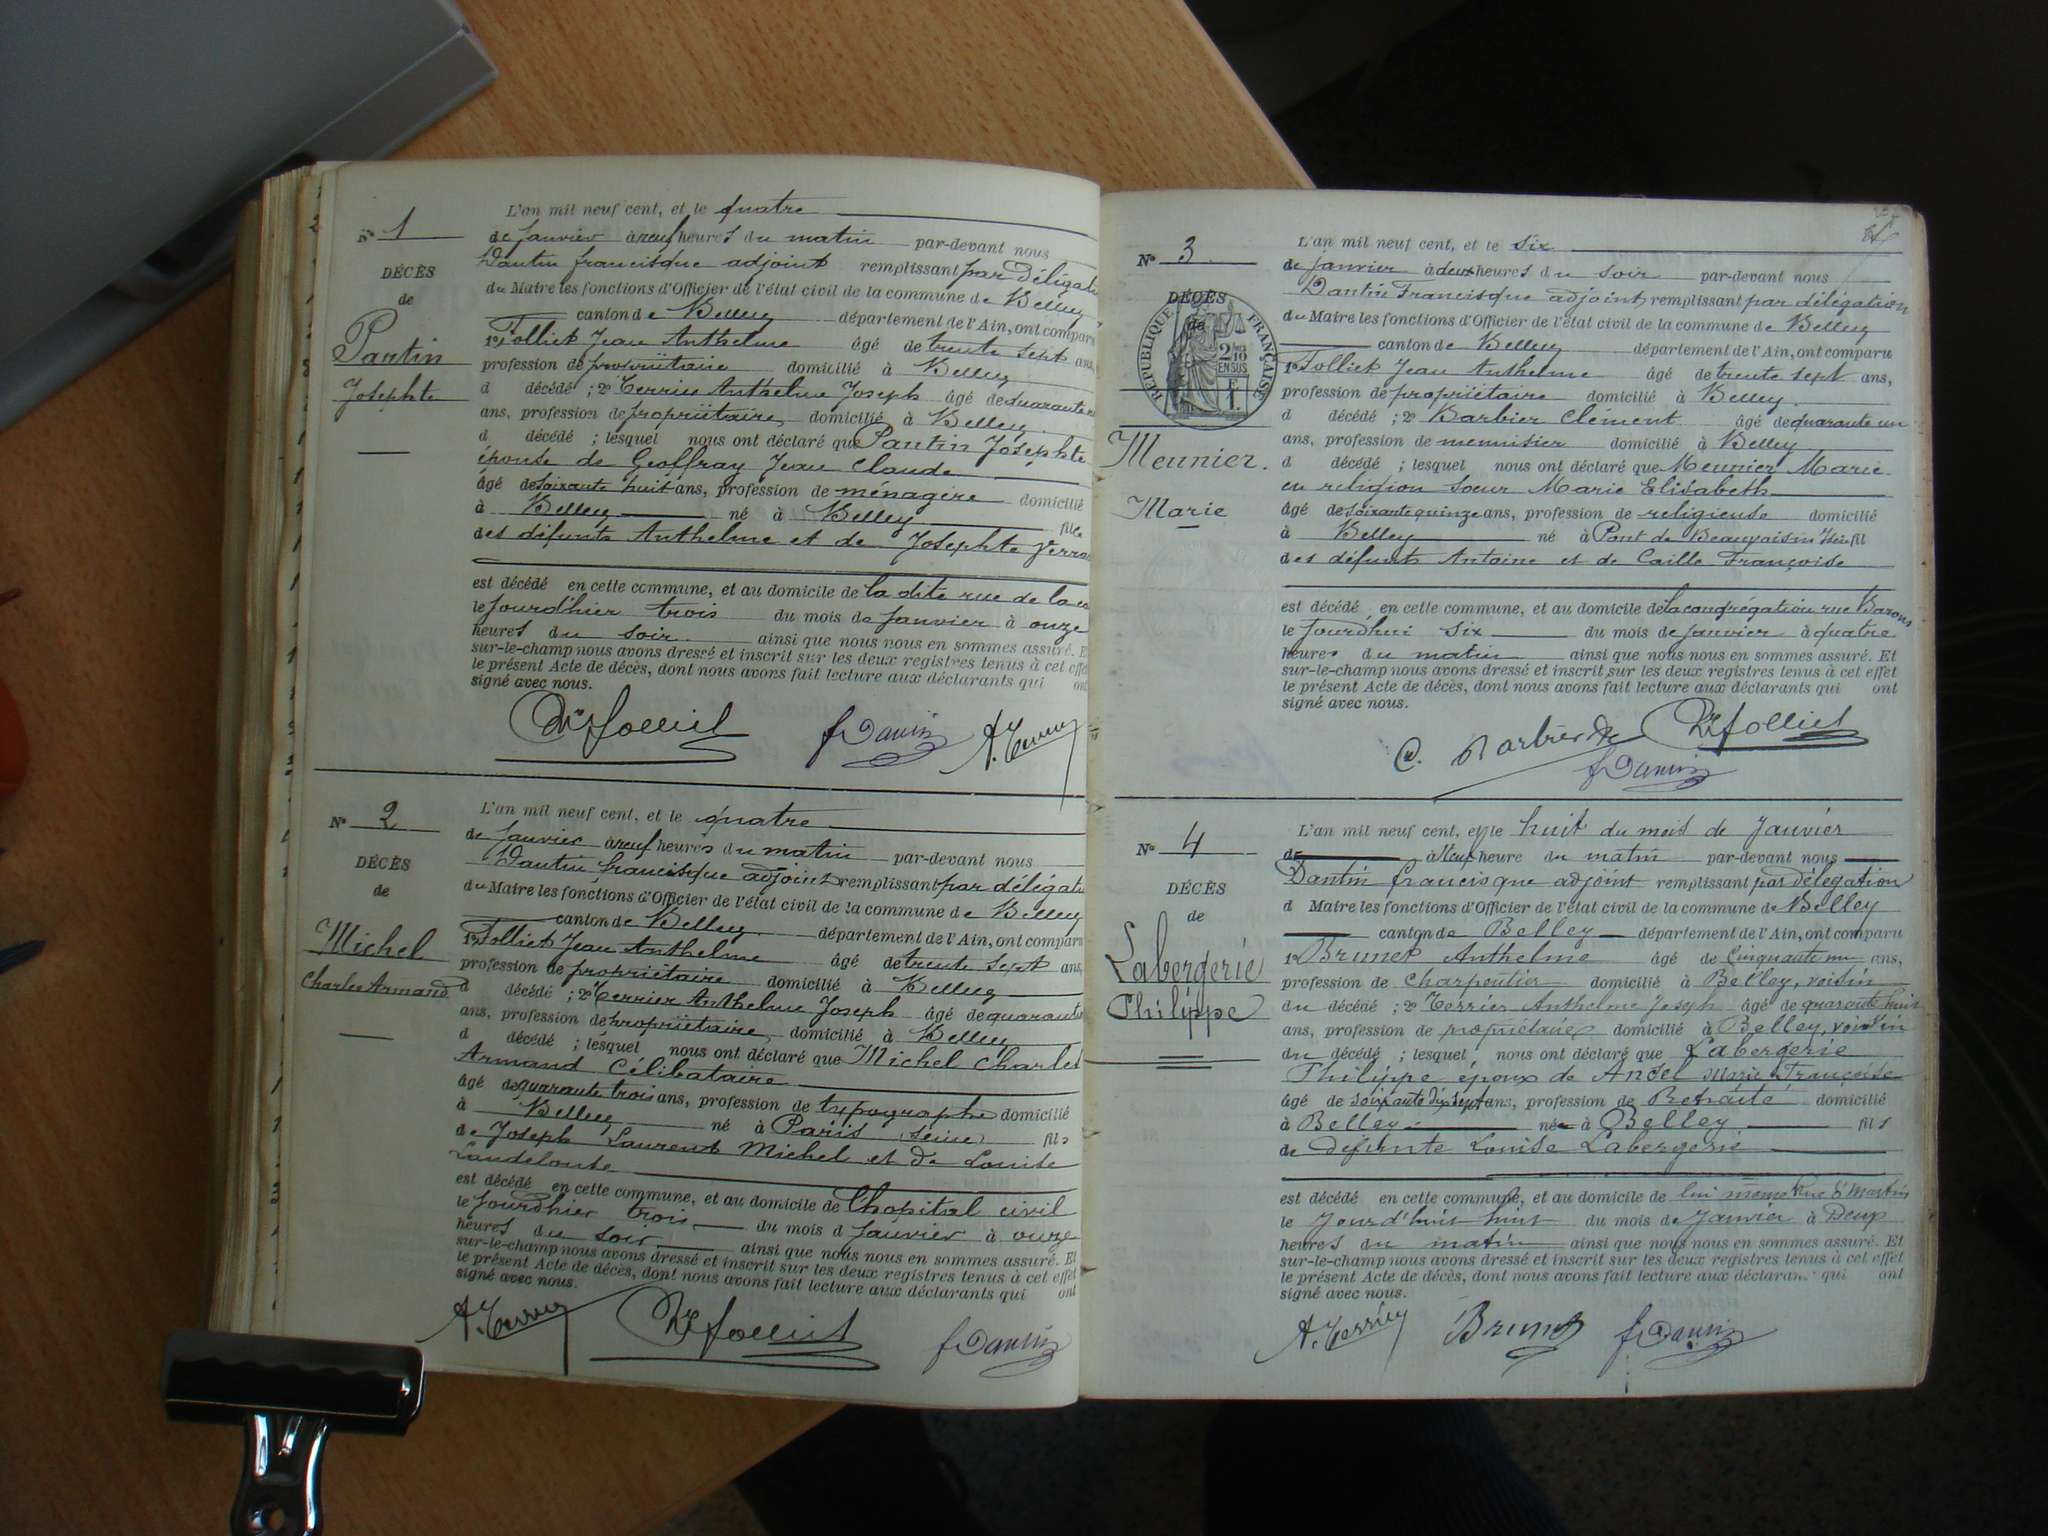 N° 1
DÉCÈS
de
Pantin
Josephte
L'an mil neuf cent, et le quatre
de Janvier à neuf heures du matin par-devant nous
Dantin francisque adjoint remplissant par Délégati
du Maire les fonctions d'Officier de l'état civil de la commune de Belley
canton de Belley département de l'Ain, ont comparu
1° Folliet Jean Anthelme âgé de trente sept ans,
profession de propriétaire domicilié à Belley
d décédé ; 2° Terrier Anthelme Joseph âgé de quarante
ans, profession de propriétaire domicilié à Belley
d décédé ; lesquel nous ont déclaré que Pantin Josephte
épouse de Geoffray Jean Claude
âgé de soixante huit ans, profession de ménagère domicilié
à Belley né à Belley fille
des défunts Anthelme et de Josephte
est décédé en cette commune, et au domicile de la dite rue de la
le jourd'hier trois du mois de Janvier à onze
heures du soir ainsi que nous nous en sommes assuré. Et
sur-le-champ nous avons dressé et inscrit sur les deux registres tenus à cet effet
le présent Acte de décès, dont nous avons fait lecture aux déclarants qui ont
signé avec nous.
Dr Folliet f Dantin A. Terrier
N° 2
DÉCÈS
de
Michel
Charles Armand
L'an mil neuf cent, et le quatre
de Janvier à neuf heures du matin par-devant nous
Dantin francisque adjoint remplissant par délégati
du Maire les fonctions d'Officier de l'état civil de la commune de Belley
canton de Belley département de l'Ain, ont comparu
1° Folliet Jean Anthelme âgé de trente sept ans,
profession de propriétaire domicilié à Belley
d décédé ; 2° Terrier Anthelme Joseph âgé de quarante
ans, profession de propriétaire domicilié à Belley
d décédé ; lesquel nous ont déclaré que Michel Charles
Armand Célibataire
âgé de quarante trois ans, profession de typographe domicilié
à Belley né à Paris (Seine) fils
de Joseph Laurent Michel et de Louise
Landelonte
est décédé en cette commune, et au domicile de l'hopital civil
le jourd'hier trois du mois d Janvier à onze
heures du soir ainsi que nous nous en sommes assuré. Et
sur-le-champ nous avons dressé et inscrit sur les deux registres tenus à cet effet
le présent Acte de décès, dont nous avons fait lecture aux déclarants qui ont
signé avec nous.
A. Terrier Dr Folliet f Dantin
N° 3
DÉCÈS
de
RÉPUBLIQUE FRANÇAISE
2/10 EN SUS
Meunier.
Marie
L'an mil neuf cent, et le six
de janvier à deux heures du soir par-devant nous
Dantin Francisque adjoint remplissant par délégation
du Maire les fonctions d'Officier de l'état civil de la commune de Belley
canton de Belley département de l'Ain, ont comparu
1° Folliet Jean Anthelme âgé de trente sept ans,
profession de propriétaire domicilié à Belley.
d décédé ; 2° Barbier Clément âgé de quarante un
ans, profession de menuisier domicilié à Belley
d décédé ; lesquel nous ont déclaré que Meunier Marie
en religion soeur Marie Elisabeth
âgé de soixante quinze ans, profession de religieuse domicilié
à Belley né à Pont de Beauvoisin Isère fil
des défunts Antoine et de Caille Françoise
est décédé en cette commune, et au domicile de la congrégation rue Barons
le jourd'hui six du mois de janvier à quatre
heures du matin ainsi que nous nous en sommes assuré. Et
sur-le-champ nous avons dressé et inscrit sur les deux registres tenus à cet effet
le présent Acte de décès, dont nous avons fait lecture aux déclarants qui ont
signé avec nous.
C. Barbier Dr Folliet
f Dantin
N° 4
DÉCÈS
de
Labergerie
Philippe
L'an mil neuf cent, et le huit du mois de Janvier
de à Neuf heure du matin par-devant nous
Dantin francisque adjoint remplissant par délégation
d Maire les fonctions d'Officier de l'état civil de la commune de Belley
canton de Belley département de l'Ain, ont comparu
1° Brunet Anthelme âgé de Cinquante un ans,
profession de Charpentier domicilié à Belley, voisin
du décédé ; 2° Terrier Anthelme Joseph âgé de quarante huit
ans, profession de propriétaire domicilié à Belley, voisin
du décédé ; lesquel nous ont déclaré que Labergerie
Philippe époux de Ancel Marie Françoise
âgé de soixante dix sept ans, profession de Retraité domicilié
à Belley né à Belley fils
de défunte Louise Labergerie
est décédé en cette commune, et au domicile de lui même Rue St Martin
le Jourd'huit huit du mois de Janvier à Deux
heures du matin ainsi que nous nous en sommes assuré. Et
sur-le-champ nous avons dressé et inscrit sur les deux registres tenus à cet effet
le présent Acte de décès, dont nous avons fait lecture aux déclarans qui ont
signé avec nous.
A. Terrier Brunet f Dantin